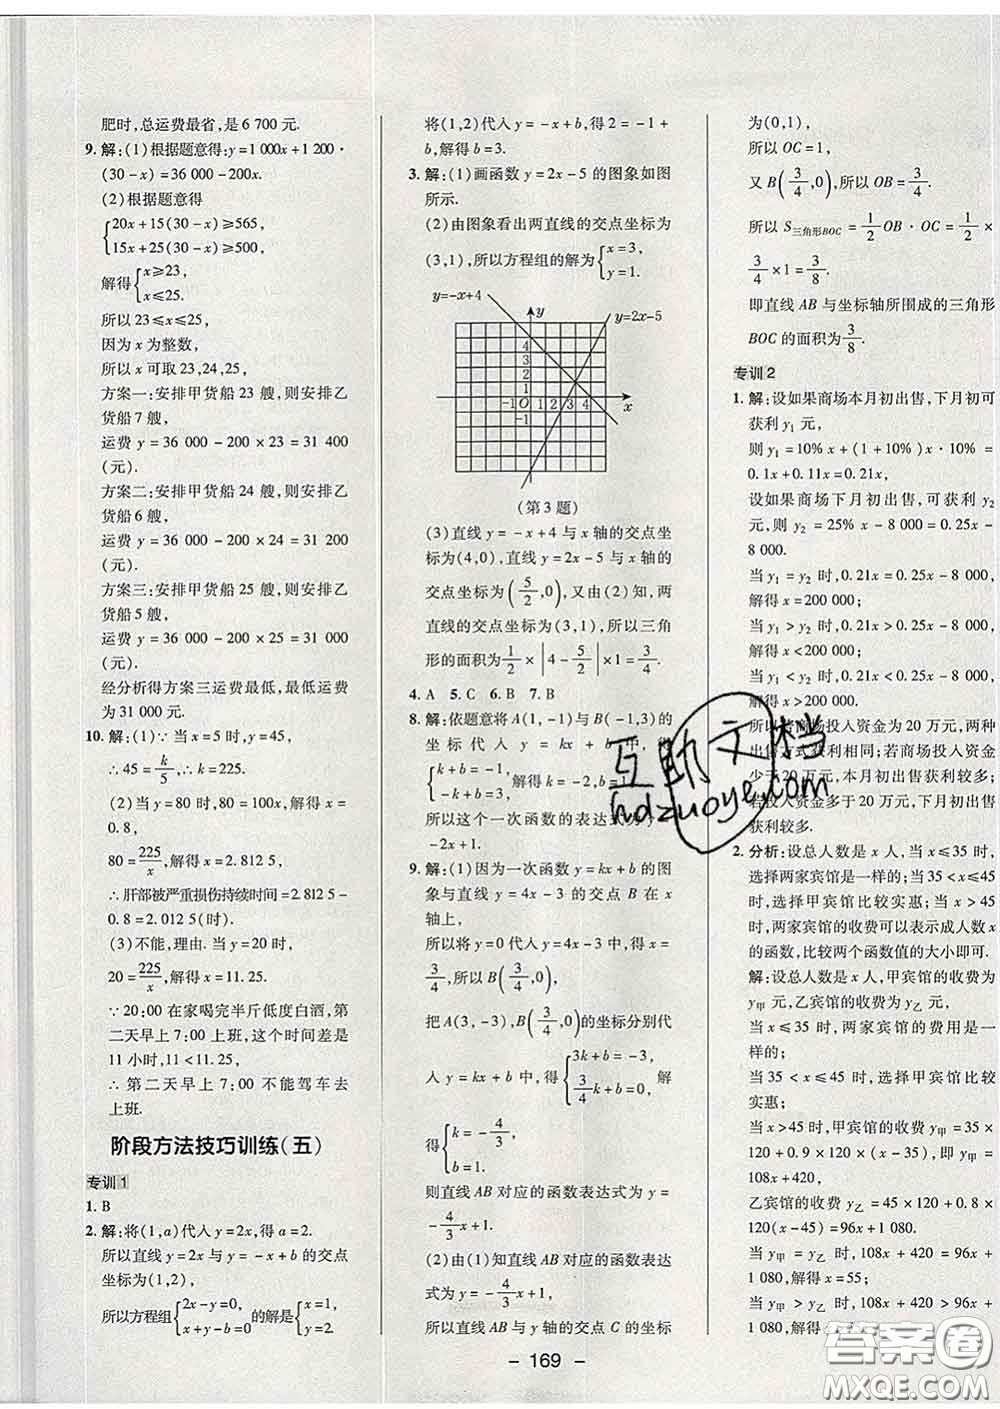 肥时,总运费最省,是 6 700 元.
9. 解:(1)根据题意得:y=1 000x+1 200·
(30-x)=36 000-200x.
(2)根据题意得
{20x+15(30-x)≥565,
15x+25(30-x)≥500,
解得{x≥23,
x≤25.
所以 23≤x≤25,
因为 x 为整数,
所以 x 可取 23,24,25,
方案一:安排甲货船 23 艘,则安排乙
货船 7 艘,
运费 y = 36 000 - 200 × 23 = 31 400
(元).
方案二:安排甲货船 24 艘,则安排乙
货船 6 艘,
运费 y = 36 000 - 200 × 24 = 31 200
(元).
方案三:安排甲货船 25 艘,则安排乙
货船 5 艘,
运费 y = 36 000 - 200 × 25 = 31 000
(元).
经分析得方案三运费最低,最低运费
为 31 000 元.
10. 解:(1)∵当 x=5 时,y=45,
∴45=k/5,∴k=225.
(2)当 y=80 时,80=100x,解得 x=
0.8,
80=225/x,解得 x=2.812 5,
∴肝部被严重损伤持续时间=2.812 5-
0.8=2.012 5(时).
(3)不能,理由.当 y=20 时,
20=225/x,解得 x=11.25.
∵20:00 在家喝完半斤低度白酒,第
二天早上 7:00 上班,这个时间差是
11 小时,11<11.25.
∴第二天早上 7:00 不能驾车去
上班.
阶段方法技巧训练(五)
专训1
1. B
2. 解:将(1,a)代入 y=2x,得 a=2.
所以直线 y=2x 与 y=-x+b 的交点
坐标为(1,2),
所以方程组{2x-y=0,
x+y-b=0 的解是{x=1,
y=2.
将(1,2)代入 y=-x+b,得 2=-1+
b,解得 b=3.
3. 解:(1)画函数 y=2x-5 的图象如图
所示.
(2)由图象看出两直线的交点坐标为
(3,1),所以方程组的解为{x=3,
y=1.
y=-x+4
y
y=2x-5
4
3
2
1
-1 O 1 2 3 4 x
-1
(第3题)
(3)直线 y=-x+4 与 x 轴的交点坐
标为(4,0),直线 y=2x-5 与 x 轴的
交点坐标为(5/2,0),又由(2)知,两
直线的交点坐标为(3,1),所以三角
形的面积为1/2×|4-5/2|×1=3/4.
4. A 5. C 6. B 7. B
8. 解:依题意将 A(1,-1)与 B(-1,3)的
坐标代入 y=kx+b 中,得
{k+b=-1,
-k+b=3, 解得 k=-2,b=1,
所以这个一次函数的表达式为 y=
-2x+1.
9. 解:(1)因为一次函数 y=kx+b 的图
象与直线 y=4x-3 的交点 B 在 x
轴上,
所以将 y=0 代入 y=4x-3 中,得 x=
3/4,所以 B(3/4,0),
把 A(3,-3),B(3/4,0)的坐标分别代
入 y=kx+b 中,得{3k+b=-3,
3/4k+b=0, 解
得{k=-4/3,
b=1.
则直线 AB 对应的函数表达式为 y=
-4/3x+1.
(2)由(1)知直线 AB 对应的函数表达
式为 y=-4/3x+1,
所以直线 AB 与 y 轴的交点 C 的坐标
为(0,1),
所以 OC=1,
又 B(3/4,0),所以 OB=3/4.
所以 S三角形BOC=1/2OB·OC=1/2×
3/4×1=3/8.
即直线 AB 与坐标轴所围成的三角形
BOC 的面积为3/8.
专训2
1. 解:设如果商场本月初出售,下月初可
获利 y₁ 元,
则 y₁=10%x+(1+10%)x·10%=
0.1x+0.11x=0.21x,
设如果商场下月初出售,可获利 y₂
元,则 y₂=25%x-8 000=0.25x-
8 000,
当 y₁=y₂ 时,0.21x=0.25x-8 000,
解得 x=200 000;
当 y₁>y₂ 时,0.21x>0.25x-8 000,
解得 x<200 000;
当 y₁<y₂ 时,0.21x<0.25x-8 000,
解得 x>200 000.
所以若商场投入资金为 20 万元,两种
出售方式获利相同;若商场投入资金
少于 20 万元,本月初出售获利较多;
若投入资金多于 20 万元,下月初出售
获利较多.
2. 分析:设总人数是 x 人,当 x≤35 时,
选择两家宾馆是一样的;当 35<x≤45
时,选择甲宾馆比较实惠;当 x>45
时,两家宾馆的收费可以表示成人数 x
的函数,比较两个函数值的大小即可.
解:设总人数是 x 人,甲宾馆的收费为
y甲 元,乙宾馆的收费为 y乙 元,
当 x≤35 时,两家宾馆的费用是一
样的;
当 35<x≤45 时,选择甲宾馆比较
实惠;
当 x>45 时,甲宾馆的收费 y甲=35×
120+0.9×120×(x-35),即 y甲=
108x+420,
乙宾馆的收费 y乙=45×120+0.8×
120(x-45)=96x+1 080.
当 y甲=y乙 时,108x+420=96x+
1 080,解得 x=55;
当 y甲>y乙 时,108x+420>96x+
1 080,解得 x>55;
- 169 -
互助文档
hdzuoye.com
答案圈
MXQE.COM